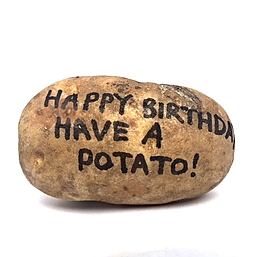 HAPPY BIRTHDAY
HAVE A
POTATO!